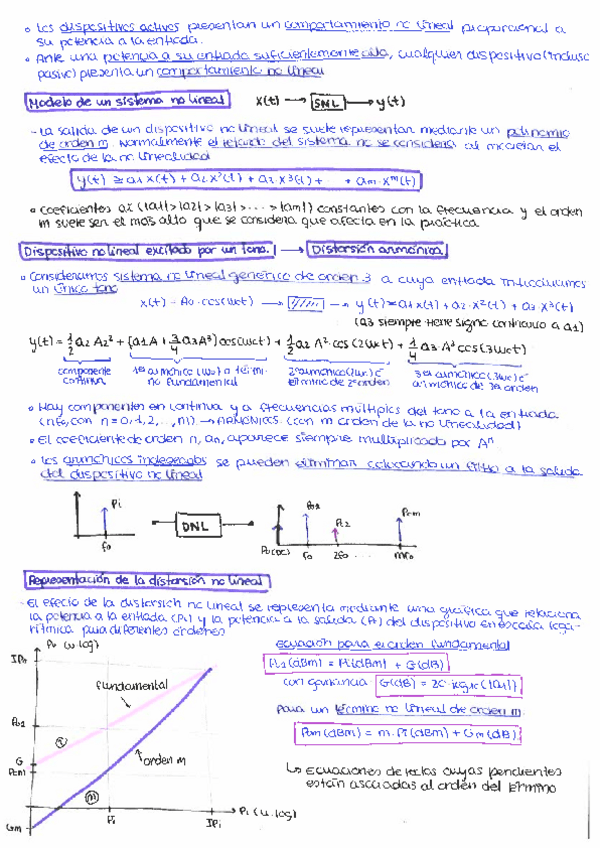 • Los dispositivos activos presentan un comportamiento no lineal proporcional a
su potencia a la entrada.
• Ante una potencia a su entrada suficientemente alta, cualquier dispositivo (incluso
pasivo) presenta un comportamiento no lineal
Modelo de un sistema no lineal x(t) → SNL → y(t)
- La salida de un dispositivo no lineal se suele representar mediante un polinomio
de orden m. Normalmente el retardo del sistema no se considera al modelar el
efecto de la no linealidad
y(t) ≅ a1 x(t) + a2 x²(t) + a3 x³(t) + + am x^m(t)
• Coeficientes ai (|a1| > |a2| > |a3| > ... > |am|) constantes con la frecuencia y el orden
m suele ser el más alto que se considera que afecta en la práctica
Dispositivo no lineal excitado por un tono. → Distorsión armónica
• Consideramos sistema no lineal genérico de orden 3 a cuya entrada introducimos
un único tono
x(t) = A0 cos(ωct) → → y(t) = a1 x(t) + a2 x²(t) + a3 x³(t)
(a3 siempre tiene signo contrario a a1)
y(t) = 1/2 a2 A² + (a1 A + 3/4 a3 A³) cos(ωct) + 1/2 a2 A² cos(2ωct) + 1/4 a3 A³ cos(3ωct)
componente continua
1er armónico (ωc) o término fundamental
2º armónico (2ωc) o término de 2º orden
3er armónico (3ωc) o armónico de 3er orden
• Hay componentes en continua y a frecuencias múltiplos del tono a la entrada
(nf0, con n = 0, 1, 2, ..., m) → ARMÓNICOS (con m orden de la no linealidad)
• El coeficiente de orden n, an, aparece siempre multiplicado por A^n
• Los armónicos indeseados se pueden eliminar colocando un filtro a la salida
del dispositivo no lineal
Pi
f0
DNL
Po(DC)
Po1
Po2
Pom
f0 2f0 ... mf0
Representación de la distorsión no lineal
- El efecto de la distorsión no lineal se representa mediante una gráfica que relaciona
la potencia a la entrada (Pi) y la potencia a la salida (Po) del dispositivo en escala loga-
rítmica para diferentes órdenes
Po (u. log)
IPo
fundamental
Po1
G
Pom
orden m
m
Gm
Pi
IPi
Pi (u. log)
Ecuación para el orden fundamental
Po1 (dBm) = Pi (dBm) + G (dB)
con ganancia G(dB) = 20·log10 (|a1|)
Para un término no lineal de orden m
Pom (dBm) = m·Pi (dBm) + Gm (dB)
↳ Ecuaciones de rectas cuyas pendientes
están asociadas al orden del término